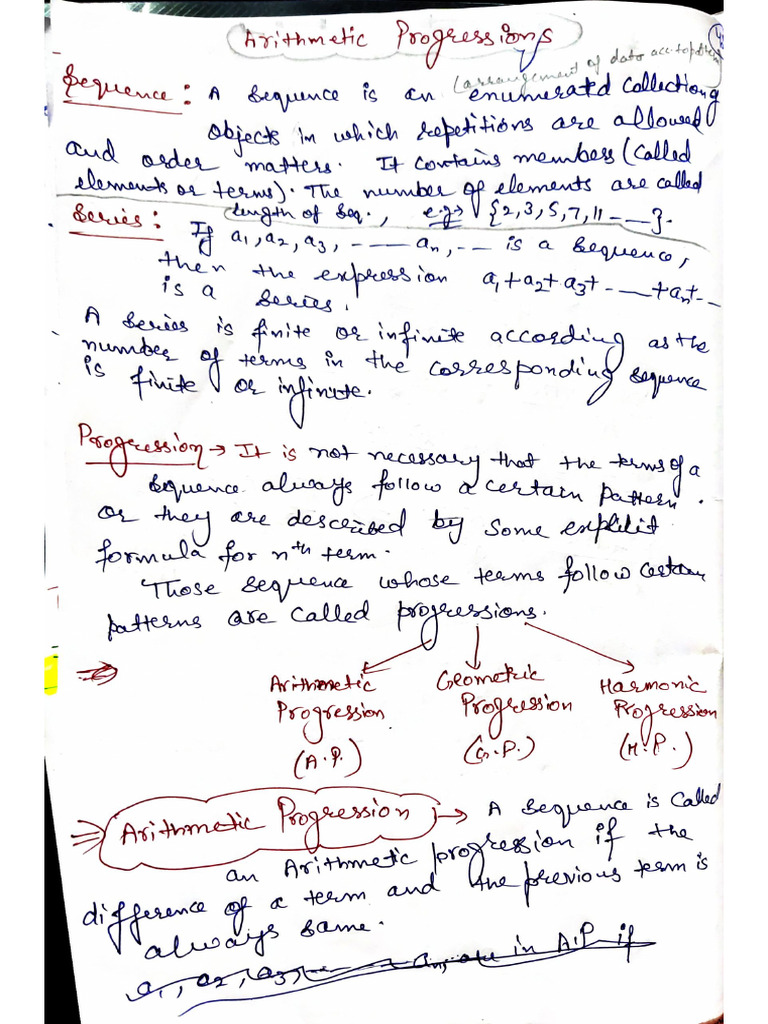 Arithmetic Progressions
(arrangement of data acc. to pattern)
Sequence : A sequence is an enumerated collection of
objects in which repetitions are allowed
and order matters. It contains members (called
elements or terms). The number of elements are called
length of seq., e.g → {2,3,5,7,11 - - - }.
Series : If a₁, a₂, a₃, - - - aₙ, - - is a sequence,
then the expression a₁ + a₂ + a₃ + - - - + aₙ + - -
is a series.
A series is finite or infinite according as the
number of terms in the corresponding sequence
is finite or infinite.
Progression → It is not necessary that the terms of a
sequence always follow a certain pattern.
or they are described by some explicit
formula for nth term.
Those sequence whose terms follow certain
patterns are called progressions.
Arithmetic Progression (A.P.)
Geometric Progression (G.P.)
Harmonic Progression (H.P.)
Arithmetic Progression → A sequence is called
an Arithmetic progression if the
difference of a term and the previous term is
always same.
a₁, a₂, a₃, - - - aₙ, are in A.P if